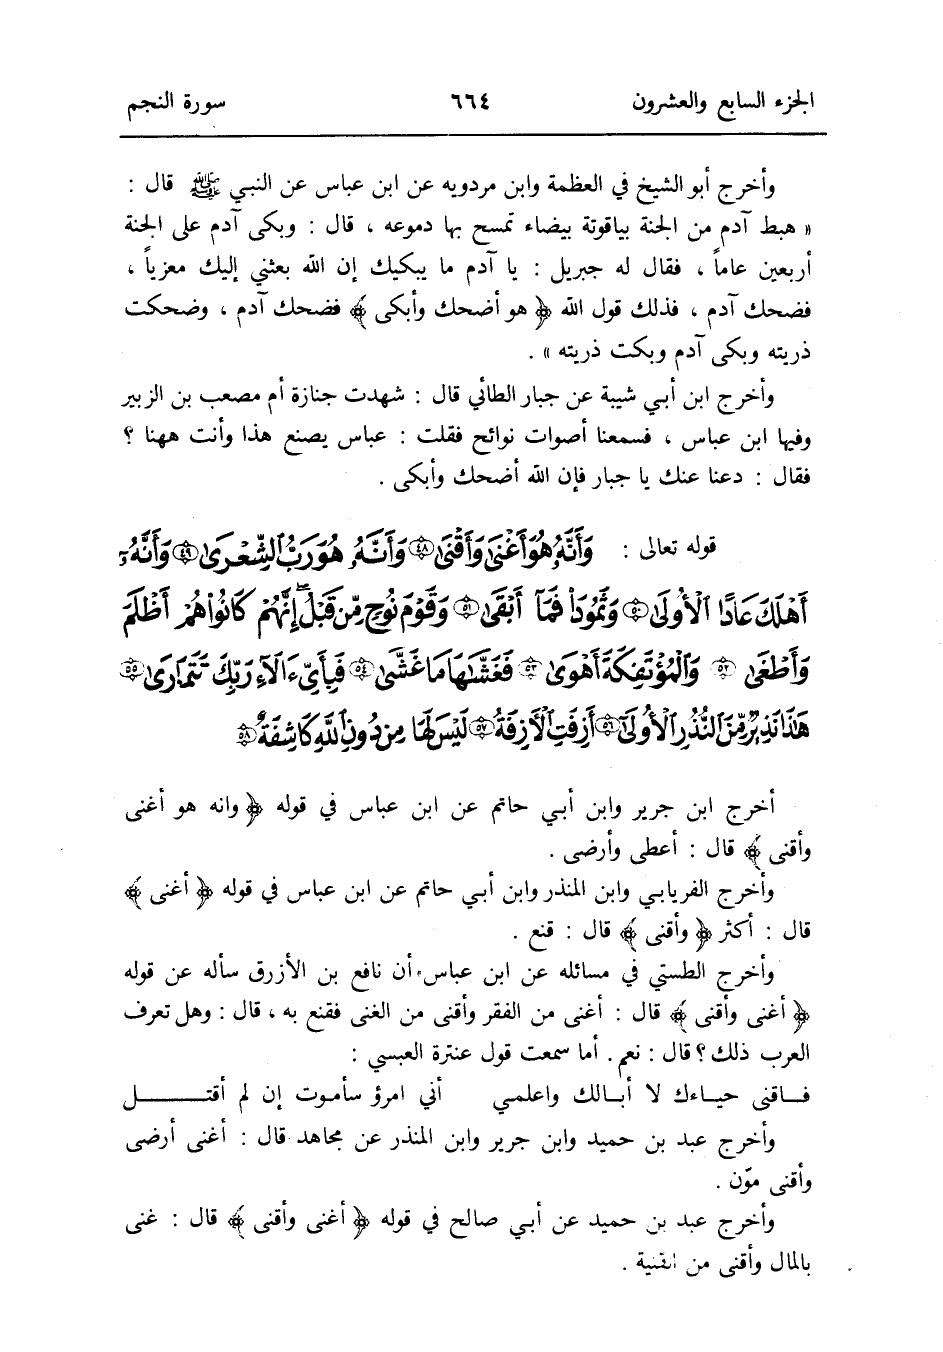 الجزء السابع والعشرون ٦٦٤ سورة النجم
وأخرج أبو الشيخ في العظمة وابن مردويه عن ابن عباس عن النبي ﷺ قال :
« هبط آدم من الجنة بياقوتة بيضاء تمسح بها دموعه ، قال : وبكى آدم على الجنة
أربعين عاماً ، فقال له جبريل : يا آدم ما يبكيك إن الله بعثني إليك معزياً ،
فضحك آدم ، فذلك قول الله ﴿ هو أضحك وأبكى ﴾ فضحك آدم ، وضحكت
ذريته وبكى آدم وبكت ذريته » .
وأخرج ابن أبي شيبة عن جبار الطائي قال : شهدت جنازة أم مصعب بن الزبير
وفيها ابن عباس ، فسمعنا أصوات نوائح فقلت : عباس يصنع هذا وأنت ههنا ؟
فقال : دعنا عنك يا جبار فإن الله أضحك وأبكى .
قوله تعالى : وَأَنَّهُۥ هُوَ أَغْنَىٰ وَأَقْنَىٰ ٤٨ وَأَنَّهُۥ هُوَ رَبُّ ٱلشِّعْرَىٰ ٤٩ وَأَنَّهُۥٓ
أَهْلَكَ عَادًا ٱلْأُولَىٰ ٥٠ وَثَمُودَا۟ فَمَآ أَبْقَىٰ ٥١ وَقَوْمَ نُوحٍ مِّن قَبْلُ ۖ إِنَّهُمْ كَانُوا۟ هُمْ أَظْلَمَ
وَأَطْغَىٰ ٥٢ وَٱلْمُؤْتَفِكَةَ أَهْوَىٰ ٥٣ فَغَشَّىٰهَا مَا غَشَّىٰ ٥٤ فَبِأَىِّ ءَالَآءِ رَبِّكَ تَتَمَارَىٰ ٥٥
هَٰذَا نَذِيرٌ مِّنَ ٱلنُّذُرِ ٱلْأُولَىٰٓ ٥٦ أَزِفَتِ ٱلْآزِفَةُ ٥٧ لَيْسَ لَهَا مِن دُونِ ٱللَّهِ كَاشِفَةٌ ٥٨
أخرج ابن جرير وابن أبي حاتم عن ابن عباس في قوله ﴿ وانه هو أغنى
وأقنى ﴾ قال : أعطى وأرضى .
وأخرج الفريابي وابن المنذر وابن أبي حاتم عن ابن عباس في قوله ﴿ أغنى ﴾
قال : أكثر ﴿ وأقنى ﴾ قال : قنع .
وأخرج الطستي في مسائله عن ابن عباس أن نافع بن الأزرق سأله عن قوله
﴿ أغنى وأقنى ﴾ قال : أغنى من الفقر وأقنى من الغنى فقنع به ، قال : وهل تعرف
العرب ذلك ؟ قال : نعم . أما سمعت قول عنترة العبسي :
فـاقنى حيـاءك لا أبـالك واعلمي أني امرؤ سأمـوت إن لم أقتـــل
وأخرج عبد بن حميد وابن جرير وابن المنذر عن مجاهد قال : أغنى أرضى
وأقنى موّن .
وأخرج عبد بن حميد عن أبي صالح في قوله ﴿ أغنى وأقنى ﴾ قال : غنى
بالمال وأقنى من القنية .